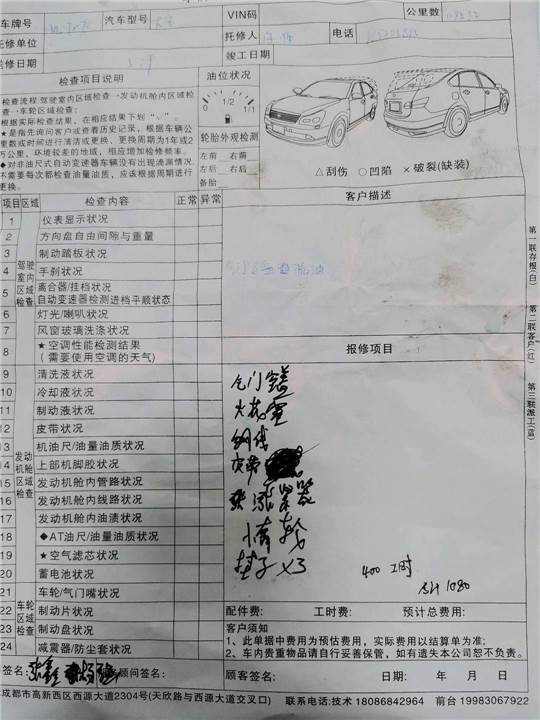 车牌号 汽车型号 VIN码 公里数
托修单位 托修人 电话
送修日期 竣工日期
检查项目说明 油位状况
检查流程:驾驶室内区域检查→发动机舱内区域检
查→车轮区域检查:
根据实际检查结果,在相应结果下划“√”。
★是指先询问客户或查看历史记录,根据车辆公
里数或时间进行清洁或更换,更换周期为1年或2
万公里,环境较差的地域,相应增加检修频率。
◆对非油尺式自动变速器车辆没有出现流漏情况,
不需要每次都检查油量油质,应该根据周期进行
更换。
0 1/2 1/1
轮胎外观检测
左前 右前
左后 右后
备胎
△刮伤 ○凹陷 ×破裂(缺装)
项目 区域 检查内容 正常 异常 客户描述
1 仪表显示状况
2 方向盘自由间隙与重量
3 制动踏板状况
4 手刹状况
5 离合器/挂档状况
自动变速器检测进档平顺状态
6 灯光/喇叭状况
7 风窗玻璃洗涤状况
8 ★空调性能检测结果
(需要使用空调的天气)
驾驶室内区域检查
报修项目
9 清洗液状况
10 冷却液状况
11 制动液状况
12 皮带状况
13 机油尺/油量油质状况
14 上部机脚胶状况
15 发动机舱内管路状况
16 发动机舱内线路状况
17 发动机舱内油渍状况
18 ◆AT油尺/油量油质状况
19 ★空气滤芯状况
20 蓄电池状况
发动机舱区域检查
21 车轮/气门嘴状况
22 制动片状况
23 制动盘状况
24 减震器/防尘套状况
车轮区域检查
气门室盖
火花塞
张紧器
惰轮
垫子 X3
400 工时
合计 1080
配件费: 工时费: 预计总费用:
客户须知
1、此单据中费用为预估费用,实际费用以结算单为准;
2、车内贵重物品请自行妥善保管,如有遗失本公司恕不负责。
签名: 张鑫 顾问签名: 顾客签名: 日期: 年 月 日
成都市高新西区西源大道2304号(天欣路与西源大道交叉口) 联系电话:技术 18086842964 前台 19983067922
第一联存根(白)
第二联客户(红)
第三联派工(蓝)